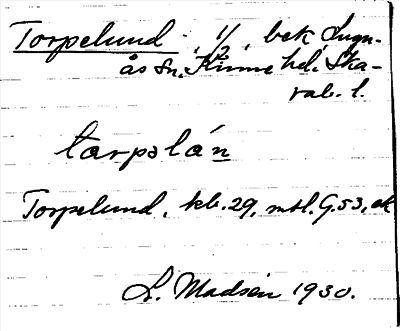 Torpelund. 1/2, bek, Lugn-
ås sn. Kinne hd. Ska-
rab. l.
tarpslán
Torpelund, kb. 29, mtl. G. 53, ek
L. Madsén 1930.